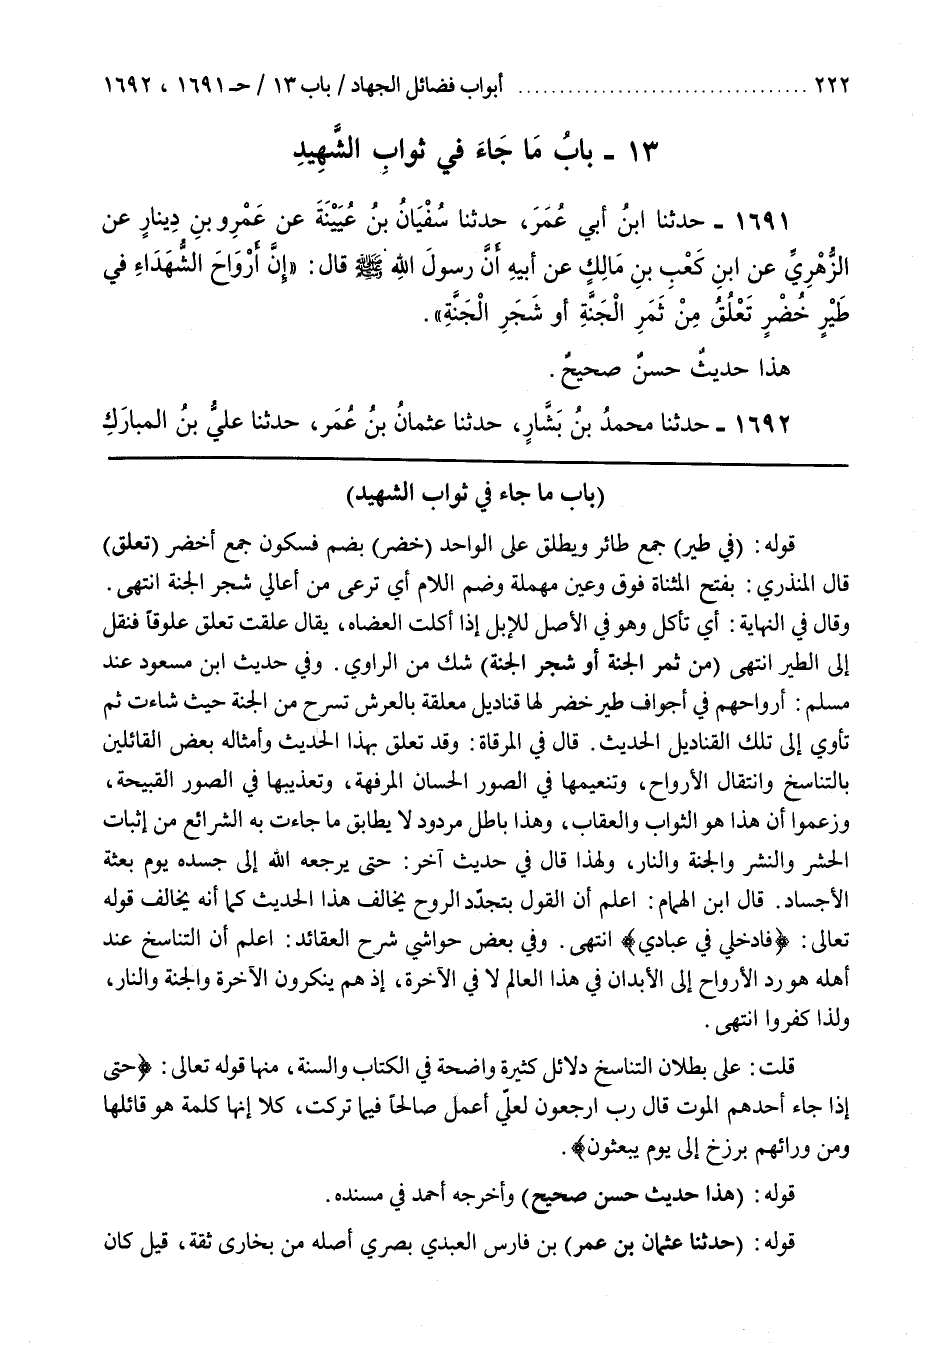 ٢٢٢ ................................. أبواب فضائل الجهاد/ باب ١٣ / حـ ١٦٩١ ، ١٦٩٢
١٣ ـ بابُ مَا جَاءَ في ثوابِ الشَّهِيدِ
١٦٩١ ـ حدثنا ابنُ أبي عُمَرَ، حدثنا سُفْيَانُ بنُ عُيَيْنَةَ عن عَمْرِو بنِ دِينارٍ عن
الزُّهْرِيِّ عن ابنِ كَعْبِ بنِ مَالِكٍ عن أبيهِ أَنَّ رسولَ اللهِ ﷺ قال: «إِنَّ أَرْوَاحَ الشُّهَدَاءِ في
طَيْرٍ خُضْرٍ تَعْلُقُ مِنْ ثَمَرِ الْجَنَّةِ أو شَجَرِ الْجَنَّةِ».
هذا حديثٌ حسنٌ صحيحٌ.
١٦٩٢ ـ حدثنا محمدُ بنُ بَشَّارٍ، حدثنا عثمانُ بنُ عُمَر، حدثنا عليُّ بنُ المبارَكِ
(باب ما جاء في ثواب الشهيد)
قوله: (في طير) جمع طائر ويطلق على الواحد (خضر) بضم فسكون جمع أخضر (تعلق)
قال المنذري: بفتح المثناة فوق وعين مهملة وضم اللام أي ترعى من أعالي شجر الجنة انتهى.
وقال في النهاية: أي تأكل وهو في الأصل للإبل إذا أكلت العضاه، يقال علقت تعلق علوقاً فنقل
إلى الطير انتهى (من ثمر الجنة أو شجر الجنة) شك من الراوي. وفي حديث ابن مسعود عند
مسلم: أرواحهم في أجواف طير خضر لها قناديل معلقة بالعرش تسرح من الجنة حيث شاءت ثم
تأوي إلى تلك القناديل الحديث. قال في المرقاة: وقد تعلق بهذا الحديث وأمثاله بعض القائلين
بالتناسخ وانتقال الأرواح، وتنعيمها في الصور الحسان المرفهة، وتعذيبها في الصور القبيحة،
وزعموا أن هذا هو الثواب والعقاب، وهذا باطل مردود لا يطابق ما جاءت به الشرائع من إثبات
الحشر والنشر والجنة والنار، ولهذا قال في حديث آخر: حتى يرجعه الله إلى جسده يوم بعثة
الأجساد. قال ابن الهمام: اعلم أن القول بتجدّد الروح يخالف هذا الحديث كما أنه يخالف قوله
تعالى: ﴿فادخلي في عبادي﴾ انتهى. وفي بعض حواشي شرح العقائد: اعلم أن التناسخ عند
أهله هو رد الأرواح إلى الأبدان في هذا العالم لا في الآخرة، إذ هم ينكرون الآخرة والجنة والنار،
ولذا كفروا انتهى.
قلت: على بطلان التناسخ دلائل كثيرة واضحة في الكتاب والسنة، منها قوله تعالى: ﴿حتى
إذا جاء أحدهم الموت قال رب ارجعون لعلّي أعمل صالحاً فيما تركت، كلا إنها كلمة هو قائلها
ومن ورائهم برزخ إلى يوم يبعثون﴾.
قوله: (هذا حديث حسن صحيح) وأخرجه أحمد في مسنده.
قوله: (حدثنا عثمان بن عمر) بن فارس العبدي بصري أصله من بخارى ثقة، قيل كان